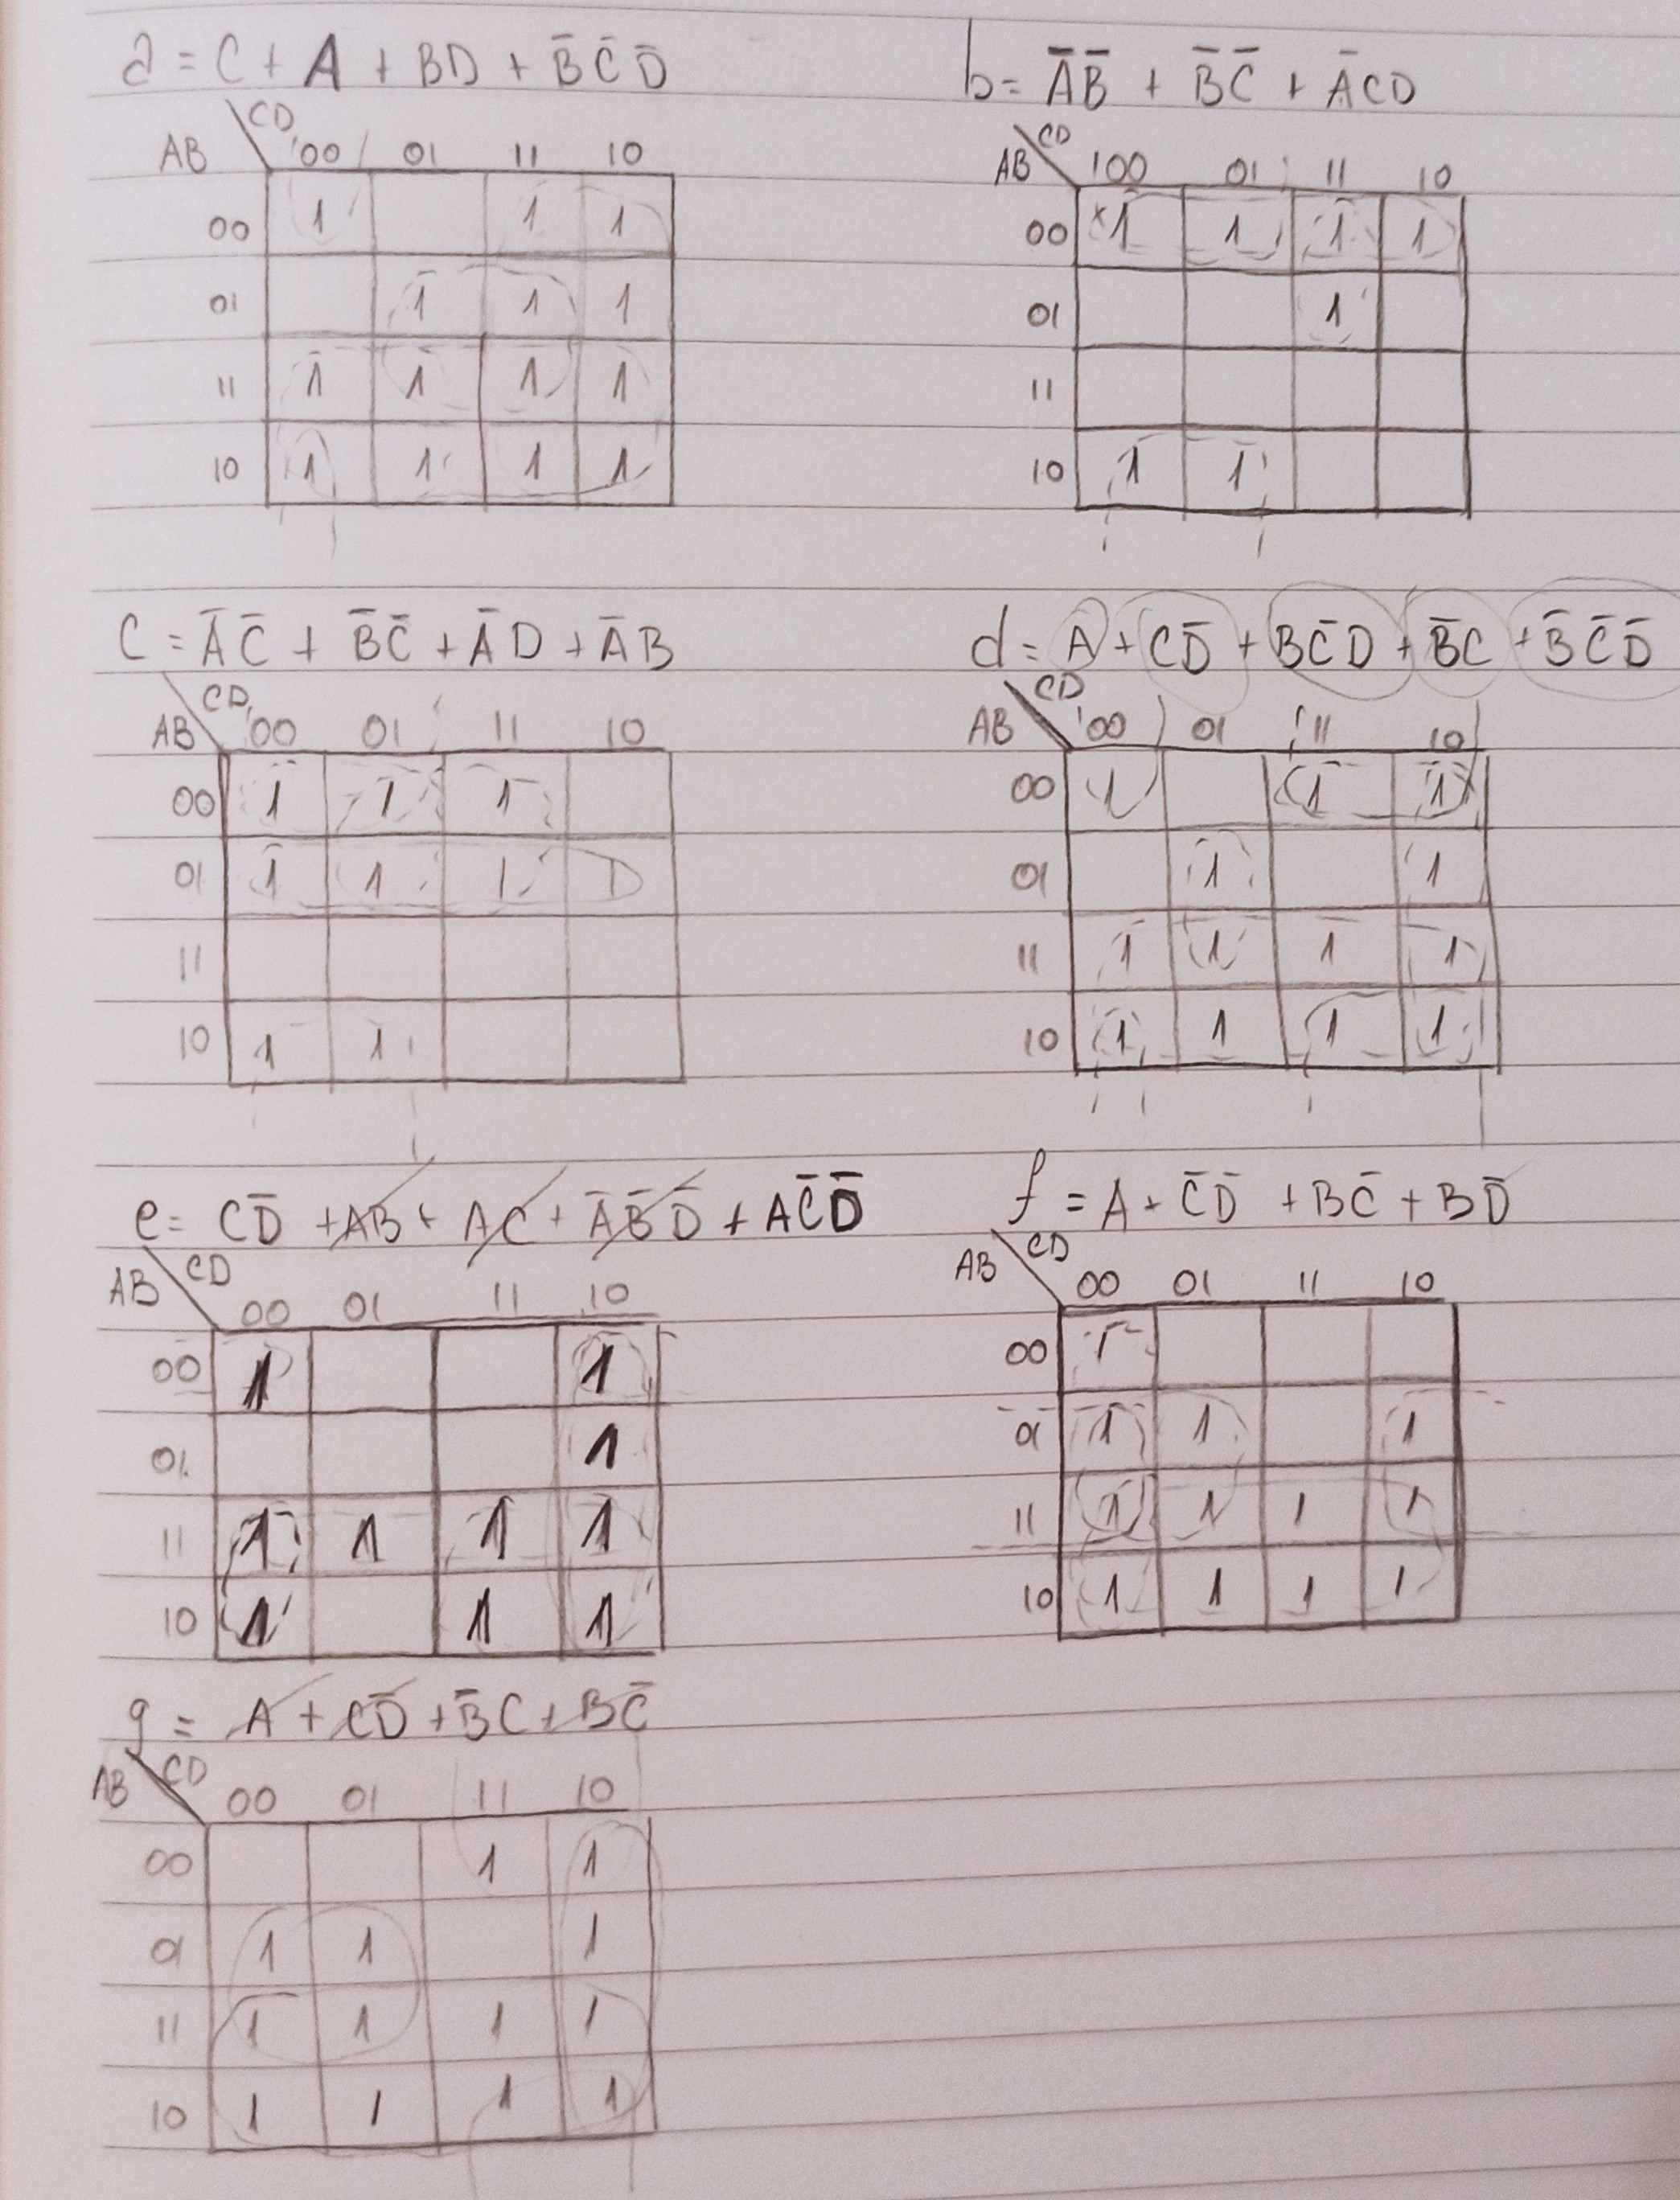 a = C + A + BD + B̄C̄D̄
AB CD 00 01 11 10
00 1 1 1
01 1 1 1
11 1 1 1 1
10 1 1 1 1
b = ĀB̄ + B̄C̄ + ĀCD
AB CD 00 01 11 10
00 1 1 1 1
01 1
11
10 1 1
C = ĀC̄ + B̄C̄ + ĀD + ĀB
AB CD 00 01 11 10
00 1 1 1
01 1 1 1 1
11
10 1 1
d = A + CD̄ + BC̄D + B̄C + B̄C̄D̄
AB CD 00 01 11 10
00 1 1 1
01 1 1
11 1 1 1 1
10 1 1 1 1
e = CD̄ + AB + AC + ĀB̄D̄ + AC̄D̄
AB CD 00 01 11 10
00 1 1
01 1
11 1 1 1 1
10 1 1 1
f = A + C̄D̄ + BC̄ + BD̄
AB CD 00 01 11 10
00 1
01 1 1 1
11 1 1 1 1
10 1 1 1 1
g = A + CD̄ + B̄C + BC̄
AB CD 00 01 11 10
00 1 1
01 1 1 1
11 1 1 1 1
10 1 1 1 1